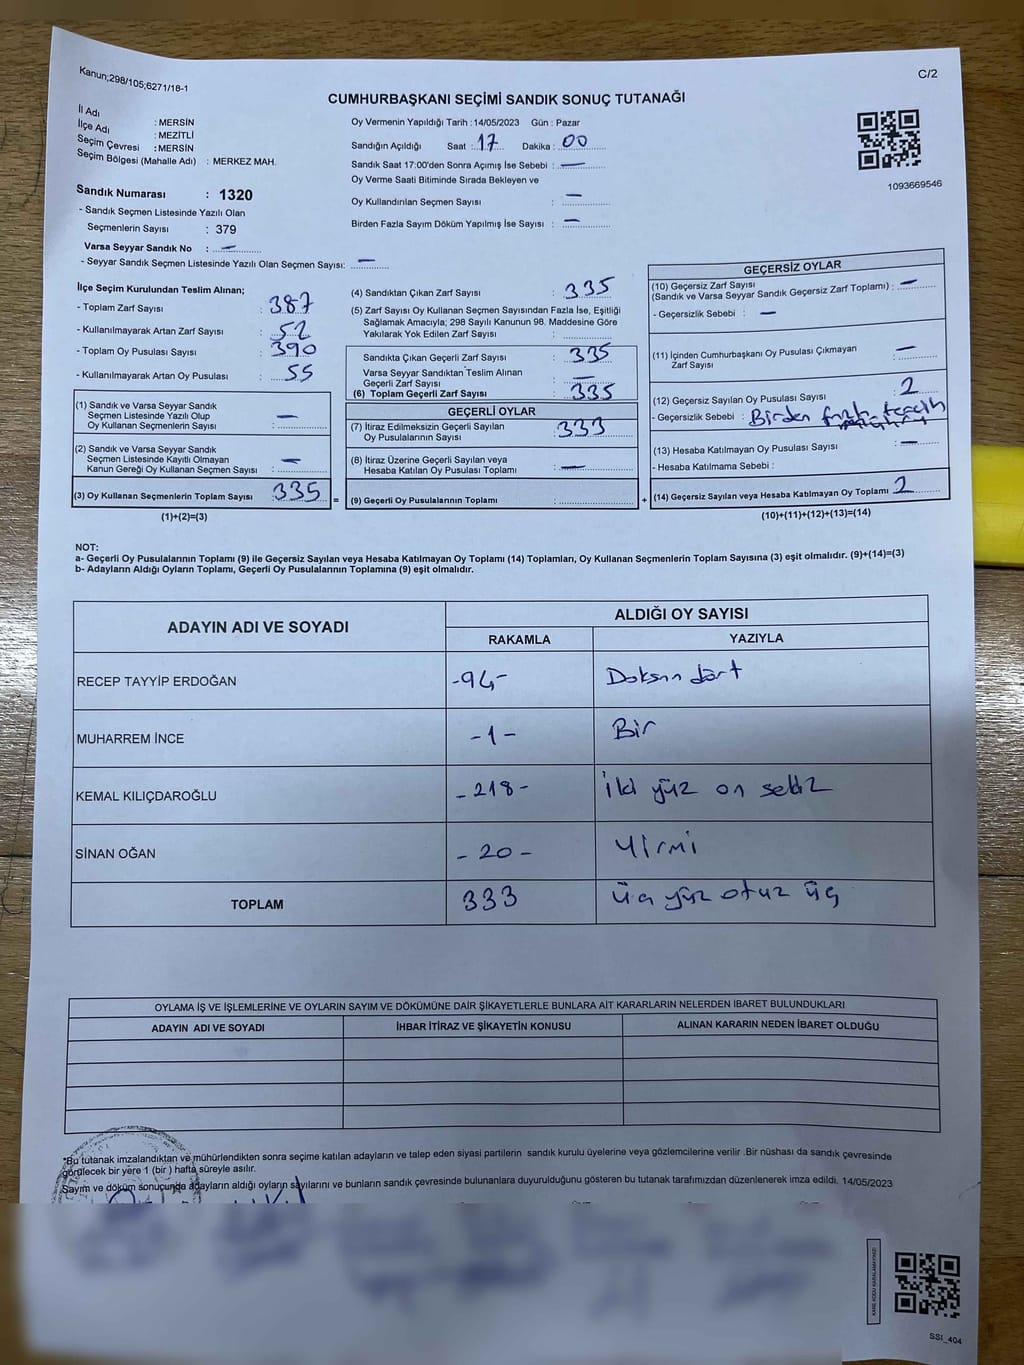 Kanun;298/105;6271/18-1
C/2
CUMHURBAŞKANI SEÇİMİ SANDIK SONUÇ TUTANAĞI
İl Adı : MERSİN
İlçe Adı : MEZİTLİ
Seçim Çevresi : MERSİN
Seçim Bölgesi (Mahalle Adı) : MERKEZ MAH.
Sandık Numarası : 1320
- Sandık Seçmen Listesinde Yazılı Olan
Seçmenlerin Sayısı : 379
Varsa Seyyar Sandık No : —
- Seyyar Sandık Seçmen Listesinde Yazılı Olan Seçmen Sayısı: —
Oy Vermenin Yapıldığı Tarih : 14/05/2023 Gün : Pazar
Sandığın Açıldığı Saat : 17 Dakika : 00
Sandık Saat 17:00'den Sonra Açımış İse Sebebi : —
Oy Verme Saati Bitiminde Sırada Bekleyen ve
Oy Kullandırılan Seçmen Sayısı : —
Birden Fazla Sayım Döküm Yapılmış İse Sayısı : —
1093669546
İlçe Seçim Kurulundan Teslim Alınan;
- Toplam Zarf Sayısı : 387
- Kullanılmayarak Artan Zarf Sayısı : 52
- Toplam Oy Pusulası Sayısı : 390
- Kullanılmayarak Artan Oy Pusulası : 55
(1) Sandık ve Varsa Seyyar Sandık
Seçmen Listesinde Yazılı Olup
Oy Kullanan Seçmenlerin Sayısı : —
(2) Sandık ve Varsa Seyyar Sandık
Seçmen Listesinde Kayıtlı Olmayan
Kanun Gereği Oy Kullanan Seçmen Sayısı : —
(3) Oy Kullanan Seçmenlerin Toplam Sayısı : 335 =
(1)+(2)=(3)
(4) Sandıktan Çıkan Zarf Sayısı : 335
(5) Zarf Sayısı Oy Kullanan Seçmen Sayısından Fazla İse, Eşitliği
Sağlamak Amacıyla; 298 Sayılı Kanunun 98. Maddesine Göre
Yakılarak Yok Edilen Zarf Sayısı :
Sandıkta Çıkan Geçerli Zarf Sayısı : 335
Varsa Seyyar Sandıktan Teslim Alınan
Geçerli Zarf Sayısı : —
(6) Toplam Geçerli Zarf Sayısı : 335
GEÇERLİ OYLAR
(7) İtiraz Edilmeksizin Geçerli Sayılan
Oy Pusulalarının Sayısı : 333
(8) İtiraz Üzerine Geçerli Sayılan veya
Hesaba Katılan Oy Pusulası Toplamı : —
(9) Geçerli Oy Pusulalarının Toplamı : +
GEÇERSİZ OYLAR
(10) Geçersiz Zarf Sayısı
(Sandık ve Varsa Seyyar Sandık Geçersiz Zarf Toplamı) : —
- Geçersizlik Sebebi : —
(11) İçinden Cumhurbaşkanı Oy Pusulası Çıkmayan
Zarf Sayısı : —
(12) Geçersiz Sayılan Oy Pusulası Sayısı : 2
- Geçersizlik Sebebi : Birden fazla tercih
(13) Hesaba Katılmayan Oy Pusulası Sayısı : —
- Hesaba Katılmama Sebebi :
(14) Geçersiz Sayılan veya Hesaba Katılmayan Oy Toplamı 2
(10)+(11)+(12)+(13)=(14)
NOT:
a- Geçerli Oy Pusulalarının Toplamı (9) ile Geçersiz Sayılan veya Hesaba Katılmayan Oy Toplamı (14) Toplamları, Oy Kullanan Seçmenlerin Toplam Sayısına (3) eşit olmalıdır. (9)+(14)=(3)
b- Adayların Aldığı Oyların Toplamı, Geçerli Oy Pusulalarının Toplamına (9) eşit olmalıdır.
ADAYIN ADI VE SOYADI
ALDIĞI OY SAYISI
RAKAMLA YAZIYLA
RECEP TAYYİP ERDOĞAN -94- Doksan dört
MUHARREM İNCE -1- Bir
KEMAL KILIÇDAROĞLU -218- İki yüz on sekiz
SİNAN OĞAN -20- Yirmi
TOPLAM 333 Üç yüz otuz üç
OYLAMA İŞ VE İŞLEMLERİNE VE OYLARIN SAYIM VE DÖKÜMÜNE DAİR ŞİKAYETLERLE BUNLARA AİT KARARLARIN NELERDEN İBARET BULUNDUKLARI
ADAYIN ADI VE SOYADI İHBAR İTİRAZ VE ŞİKAYETİN KONUSU ALINAN KARARIN NEDEN İBARET OLDUĞU
*Bu tutanak imzalandıktan ve mühürlendikten sonra seçime katılan adayların ve talep eden siyasi partilerin sandık kurulu üyelerine veya gözlemcilerine verilir .Bir nüshası da sandık çevresinde
görülecek bir yere 1 (bir ) hafta süreyle asılır.
Sayım ve döküm sonuçunda adayların aldığı oyların sayılarını ve bunların sandık çevresinde bulunanlara duyurulduğunu gösteren bu tutanak tarafımızdan düzenlenerek imza edildi. 14/05/2023
KARE KODU KARALAMAYINIZ!
SSI_404